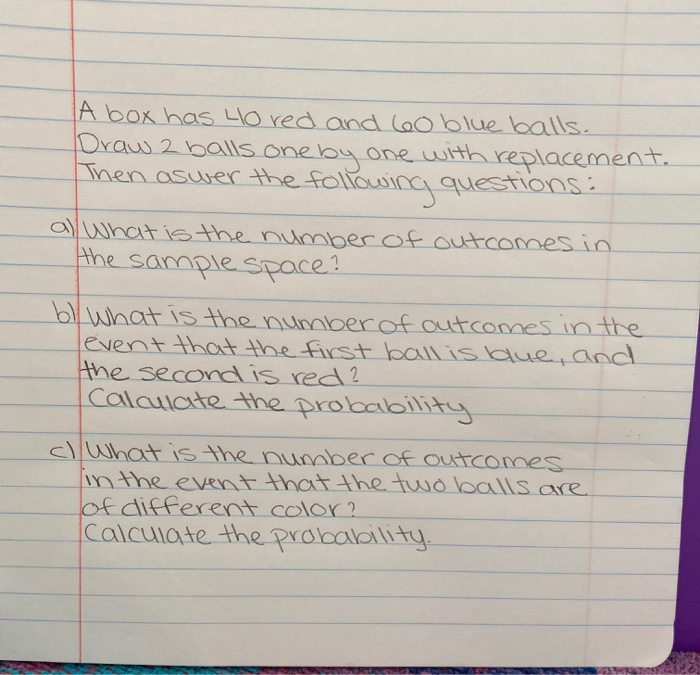 A box has 40 red and 60 blue balls.
Draw 2 balls one by one with replacement.
Then aswer the following questions:
a) What is the number of outcomes in
the sample space?
b) What is the number of outcomes in the
event that the first ball is blue, and
the second is red?
Calculate the probability
c) What is the number of outcomes
in the event that the two balls are
of different color?
Calculate the probability.